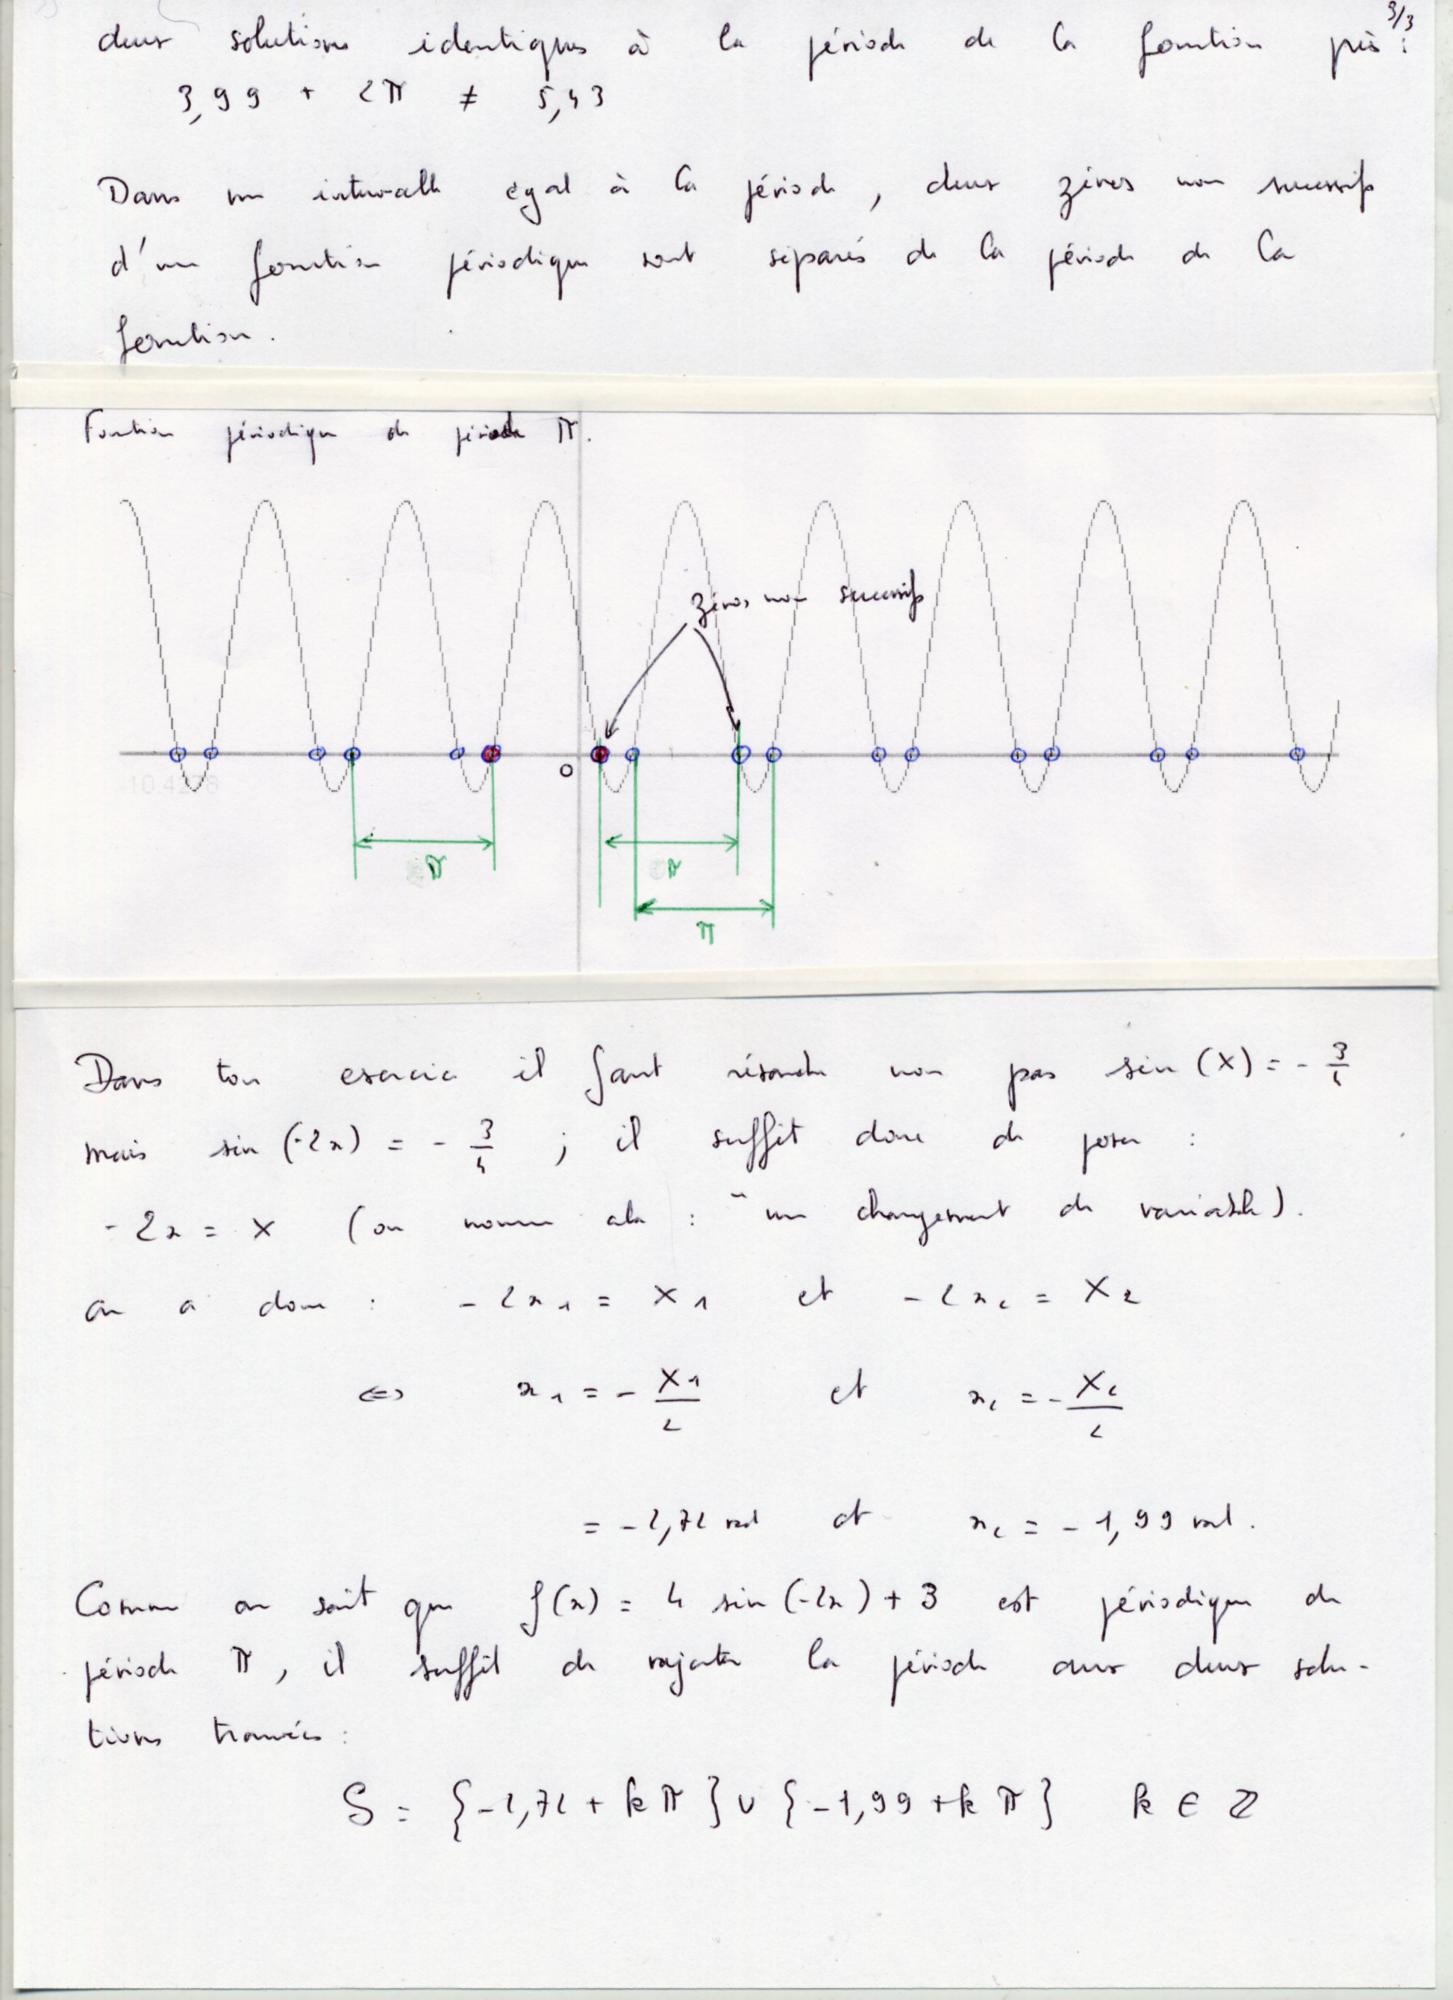 3/3
deux solutions identiques à la période de la fonction près :
3,99 + 2π ≠ 5,43
Dans un intervalle égal à la période, deux zéros non successifs
d'une fonction périodique sont séparés de la période de la
fonction.
Fonction périodique de période π.
zéros non successifs
O
10.4278
π
π
π
Dans ton exercice il faut résoudre non pas sin (X) = - 3/4
mais sin (-2x) = - 3/4 ; il suffit donc de poser :
-2x = X (on nomme cela : " un changement de variable).
on a donc : -2x₁ = X₁ et -2x₂ = X₂
⇔ x₁ = - X₁/2 et x₂ = - X₂/2
= -2,72 rad et x₂ = -1,99 rad.
Comme on sait que f(x) = 4 sin (-2x) + 3 est périodique de
période π, il suffit de rajouter la période aux deux solu-
tions trouvées :
S = {-2,72 + k π} ∪ {-1,99 + k π} k ∈ ℤ